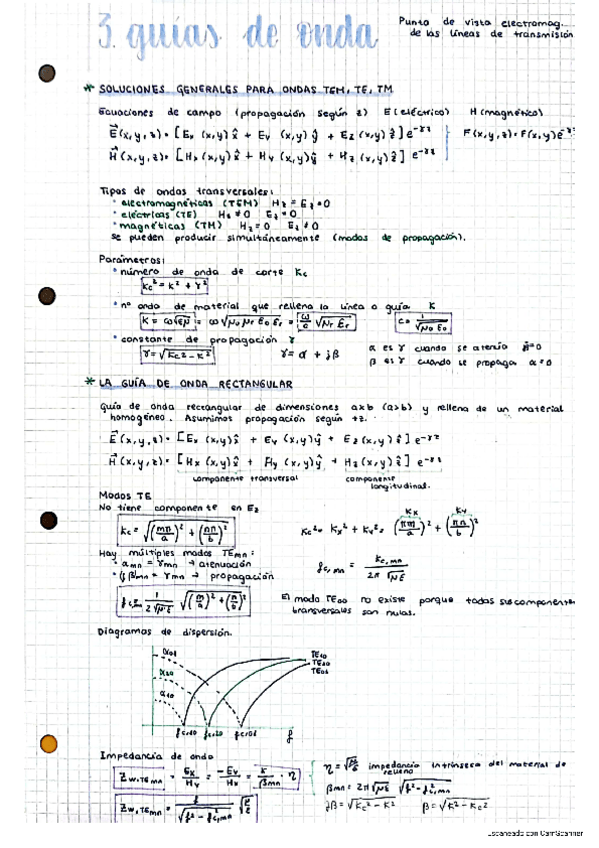 3. guías de onda
Punto de vista electromag.
de las líneas de transmisión
* SOLUCIONES GENERALES PARA ONDAS TEM, TE, TM
Ecuaciones de campo (propagación según z) E (eléctrico) H (magnético)
E⃗(x,y,z) = [Ex (x,y) x̂ + Ey (x,y) ŷ + Ez (x,y) ẑ] e^-γz F(x,y,z) = F(x,y)e^-γz
H⃗(x,y,z) = [Hx (x,y) x̂ + Hy (x,y) ŷ + Hz (x,y) ẑ] e^-γz
Tipos de ondas transversales:
• electromagnéticas (TEM) Hz = Ez = 0
• eléctricas (TE) Hz ≠ 0 Ez = 0
• magnéticas (TM) Hz = 0 Ez ≠ 0
se pueden producir simultáneamente (modos de propagación).
Parámetros:
• número de onda de corte Kc
Kc² = K² + γ²
• nº onda de material que rellena la línea o guía K
K = ω√εμ = ω√μ0 μr ε0 εr = ω/c √μr εr c = 1/√μ0 ε0
• constante de propagación γ
γ = √Kc² - K² γ = α + jβ
α es γ cuando se atenúa β=0
β es γ cuando se propaga α=0
* LA GUÍA DE ONDA RECTANGULAR
Guía de onda rectangular de dimensiones axb (a>b) y rellena de un material
homogéneo. Asumimos propagación según +z.
E⃗(x,y,z) = [Ex (x,y) x̂ + Ey (x,y) ŷ + Ez (x,y) ẑ] e^-γz
H⃗(x,y,z) = [Hx (x,y) x̂ + Hy (x,y) ŷ + Hz (x,y) ẑ] e^-γz
componente transversal componente
longitudinal.
Modos TE
No tiene componente en Ez
Kx Ky
Kc = √(mπ/a)² + (nπ/b)² Kc² = Kx² + Ky² = (mπ/a)² + (nπ/b)²
Hay múltiples modos TEmn:
• αmn = γmn → atenuación
• jβmn = γmn → propagación
fc,mn = Kc,mn / 2π√με
fc,mn = 1/2√με √(m/a)² + (n/b)²
El modo TE00 no existe porque todas sus componentes
transversales son nulas.
Diagramas de dispersión.
α01
α20
α10
TE10
TE20
TE01
fc,10 fc,20 fc,01 f
Impedancia de onda
Zw,TEmn = Ex/Hy = -Ey/Hx = K/βmn · η
η = √μ/ε impedancia intrínseca del material de
relleno
βmn = 2π√με √f² - f²c,mn
Zw,TEmn = f/√f² - f²c,mn √μ/ε
jβ = √Kc² - K² β = √K² - Kc²
Escaneado con CamScanner